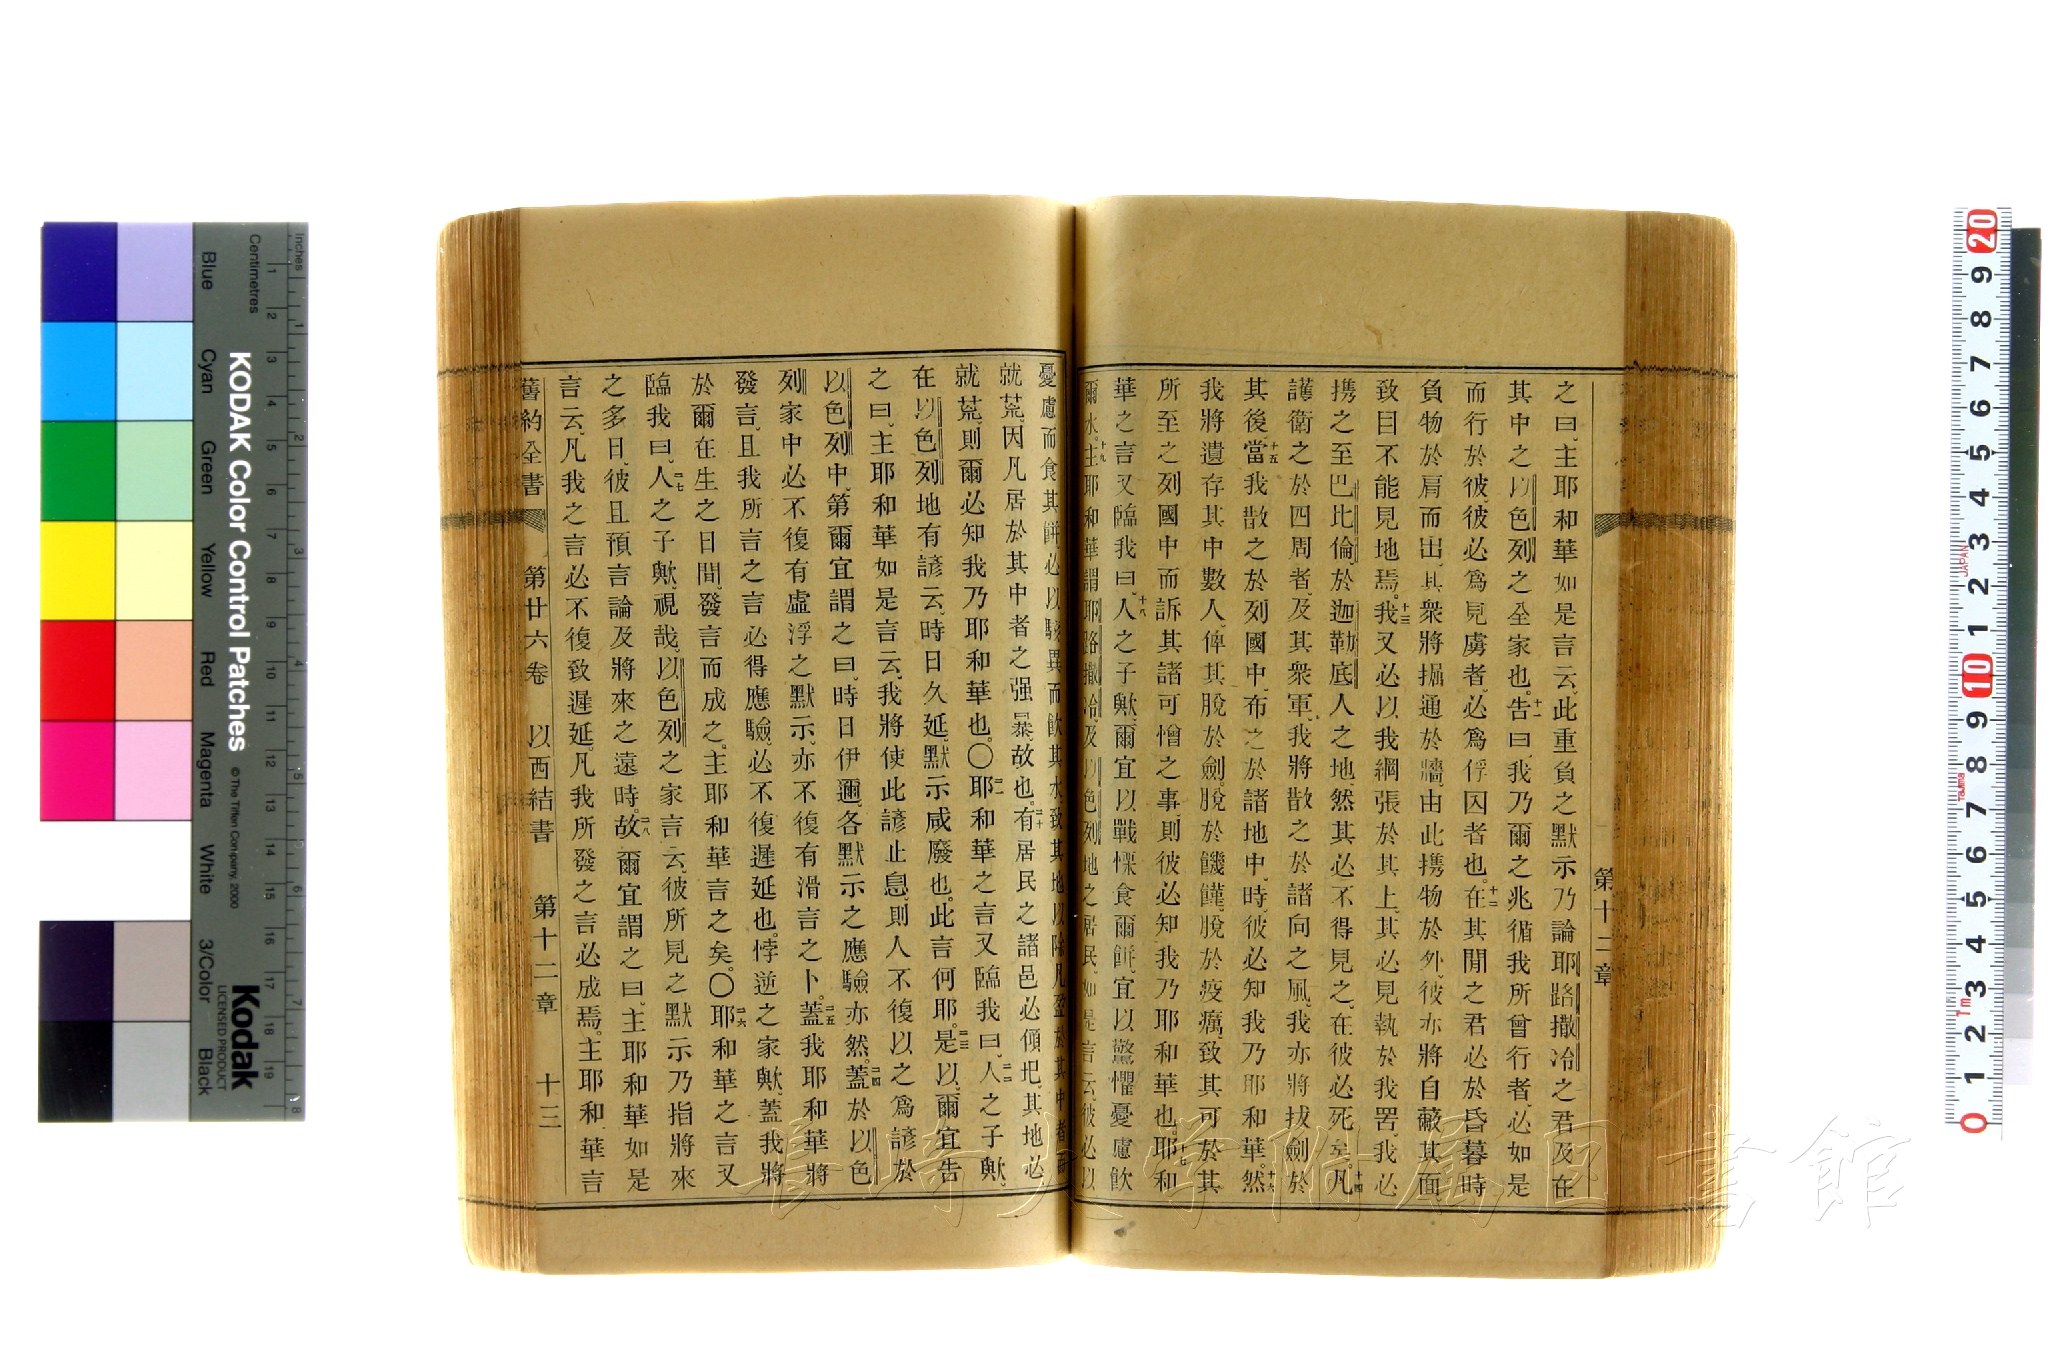 之曰、主耶和華如是言云、此重負之默示乃論耶路撒冷之君及在
其中之以色列之全家也。十一告曰、我乃爾之兆、循我所曾行者、必如是
而行於彼、彼必爲見虜者、必爲俘囚者也。十二在其閒之君必於昏暮時
負物於肩而出、其衆將掘通於牆、由此携物於外、彼亦將自蔽其面、
致目不能見地焉。十三我又必以我網張於其上、其必見執於我罟、我必
携之至巴比倫於迦勒底人之地、然其必不得見之、在彼必死矣。十四凡
護衛之於四周者、及其衆軍、我將散之於諸向之風、我亦將拔劍於
其後。十五當我散之於列國中、布之於諸地中、時、彼必知我乃耶和華。十六然
我將遺存其中數人、俾其脫於劍。脫於饑饉、脫於疫癘、致其可於其
所至之列國中而訴其諸可憎之事、則彼必知我乃耶和華也。十七耶和
華之言又臨我曰、十八人之子歟、爾宜以戰慄食爾餅、宜以驚懼憂慮飲
爾水。十九主耶和華謂耶路撒冷、及以色列地之居民、如是言云、彼必以
第十二章
憂慮而食其餅、必以駭異而飲其水、致其地以除凡盈於其中者而
就荒。因凡居於其中者之强暴、故也。二十有居民之諸邑必傾圯、其地必
就荒、則爾必知我乃耶和華也。〇二一耶和華之言又臨我曰、二二人之子歟、
在以色列地有諺云、時日久延、默示咸廢也。此言何耶。二三是以、爾宜告
之曰、主耶和華如是言云、我將使此諺止息、則人不復以之爲諺於
以色列中、第爾宜謂之曰、時日伊邇、各默示之應驗亦然。二四蓋於以色
列家中必不復有虛浮之默示、亦不復有滑言之卜。二五蓋我耶和華將
發言、且我所言之言必得應驗。必不復遲延也。悖逆之家歟、蓋我將
於爾在生之日間、發言而成之。主耶和華言之矣。〇二六耶和華之言又
臨我曰、二七人之子歟、視哉、以色列之家言云、彼所見之默示乃指將來
之多日、彼且預言論及將來之遠時。二八故爾宜謂之曰、主耶和華如是
言云、凡我之言必不復致遲延。凡我所發之言必成焉。主耶和華言
舊約全書 第廿六卷 以西結書 第十二章 十三
長崎大学附属図書館
KODAK Color Control Patches
© The Tiffen Company, 2000
Kodak
LICENSED PRODUCT
Inches
Centimetres
Blue Cyan Green Yellow Red Magenta White 3/Color Black
1 2 3 4 5 6 7 8 9 10 11 12 13 14 15 16 17 18 19
1 2 3 4 5 6 7 8
20 9 8 7 6 5 4 3 2 1 10 9 8 7 6 5 4 3 2 1 0
JAPAN
Tajima